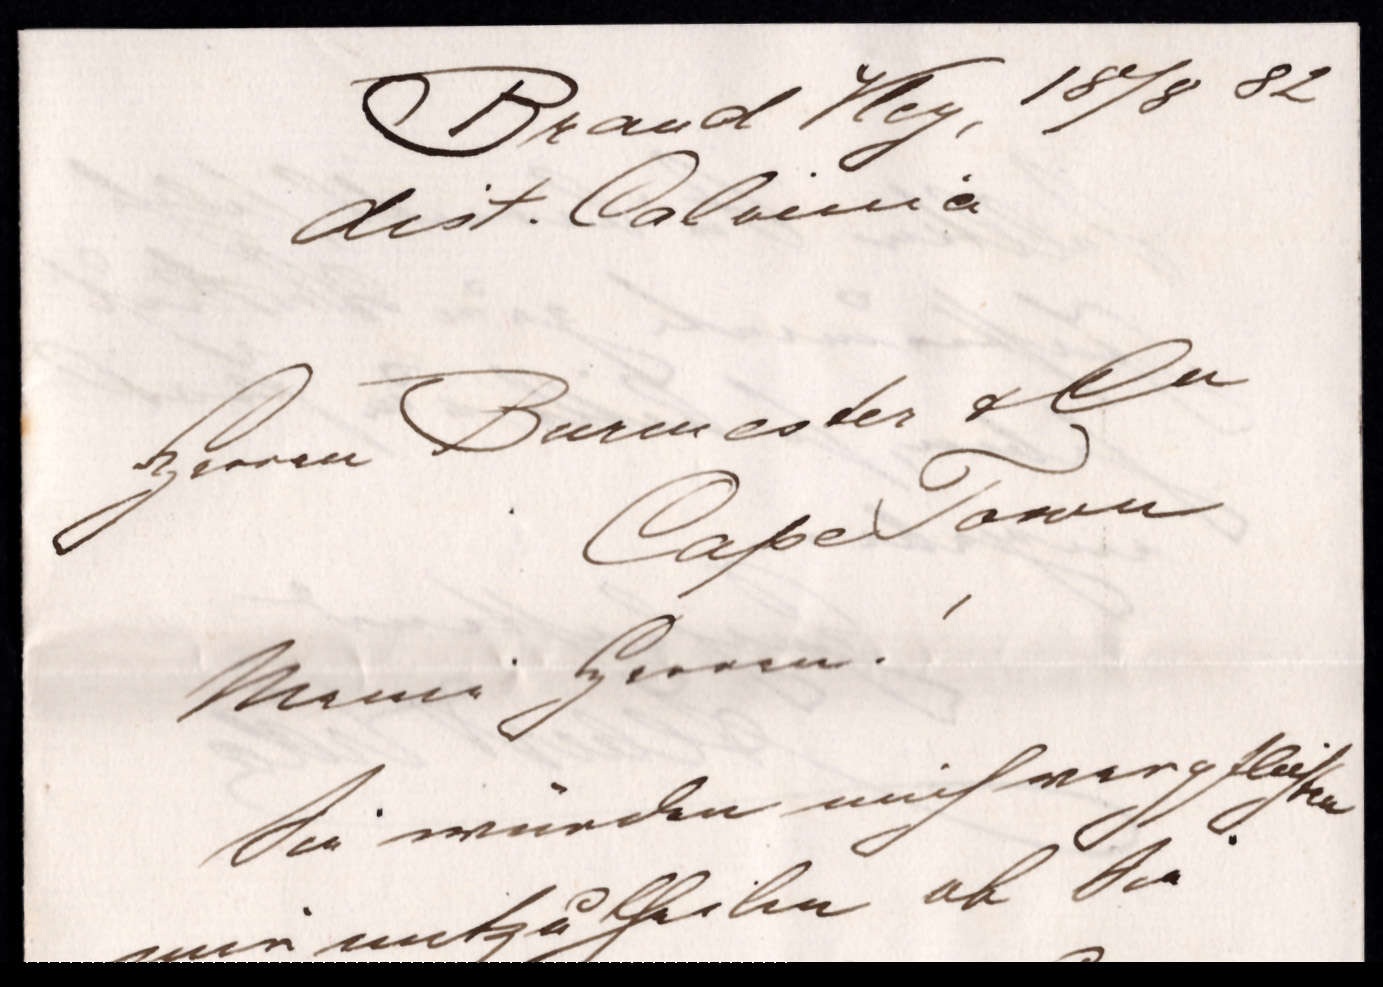 Brand Vley, 18/8 82
dist. Calvinia
Herren Burmester & Co
Cape Town
Meine Herren!
Sie würden mich verpflichten
mir mitzutheilen ob Sie